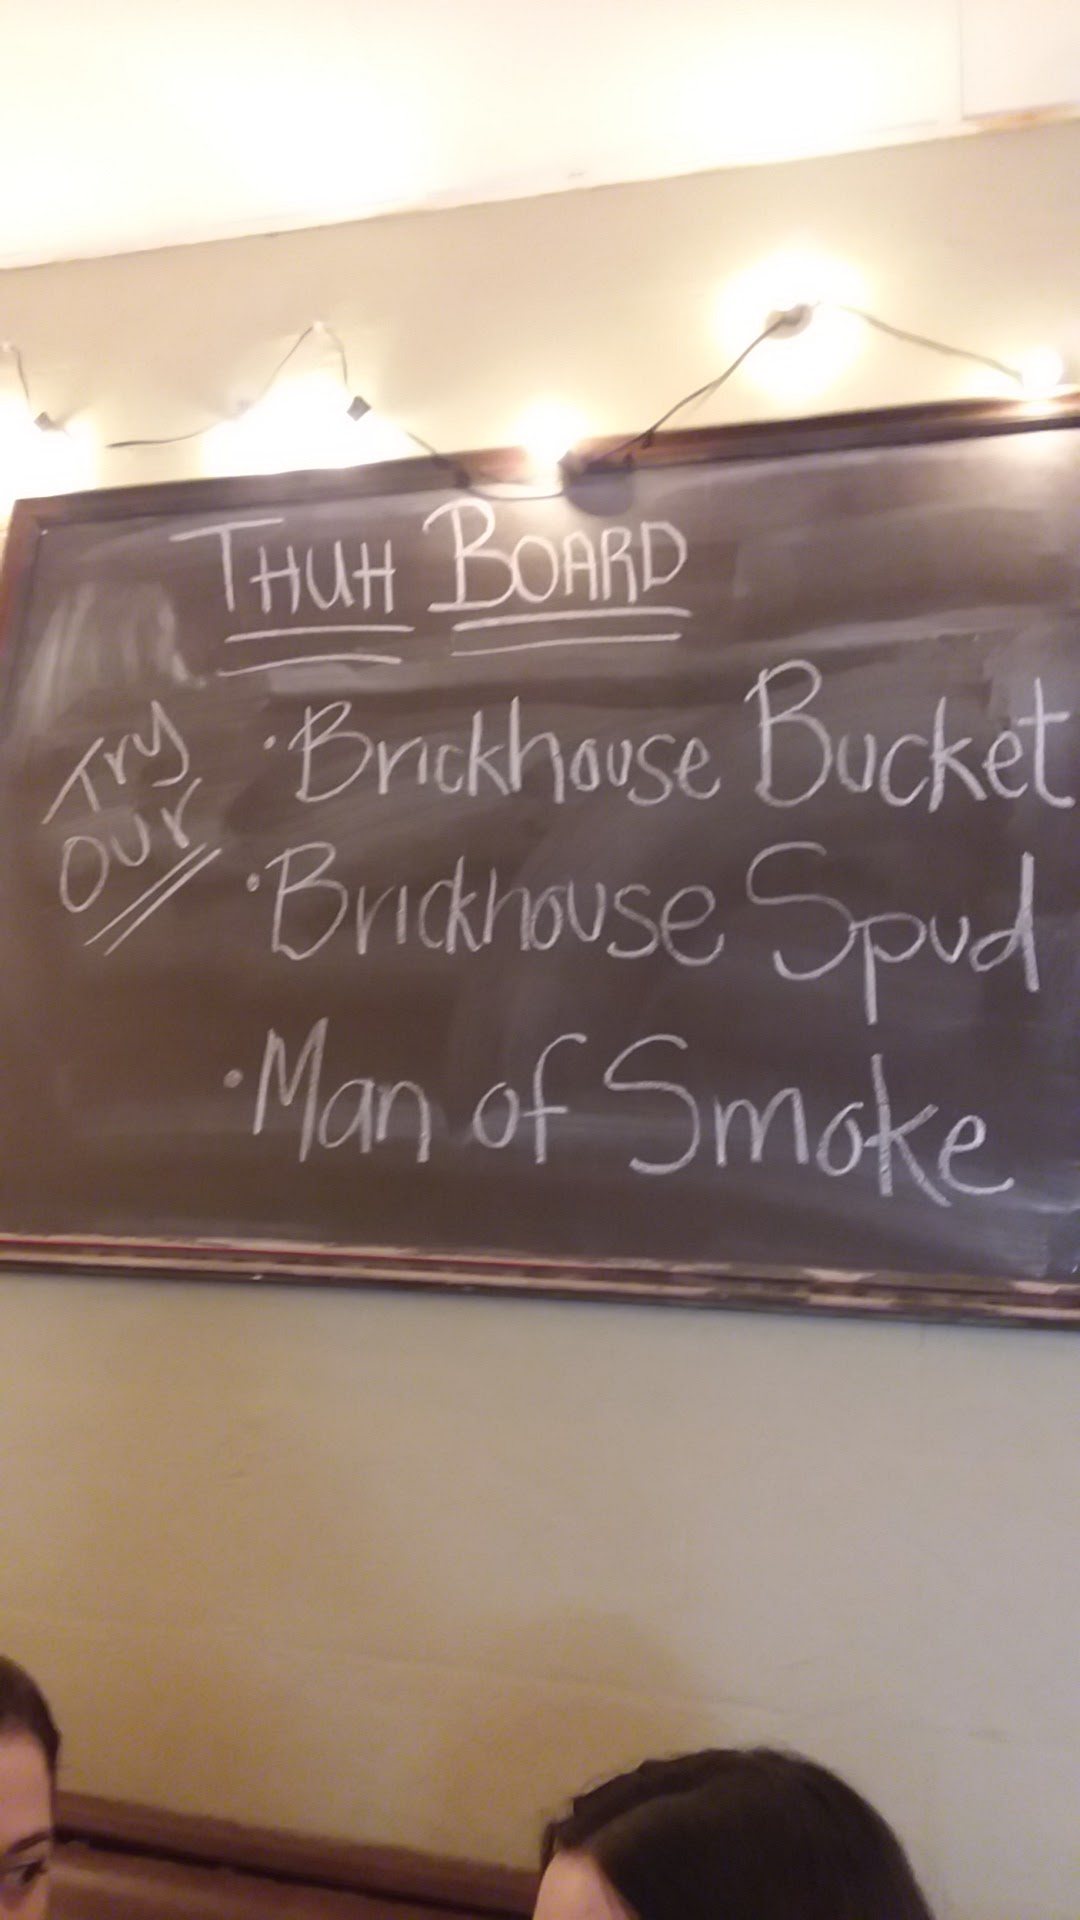 THUH BOARD
Try
our
·Brickhouse Bucket
·Brickhouse Spud
·Man of Smoke